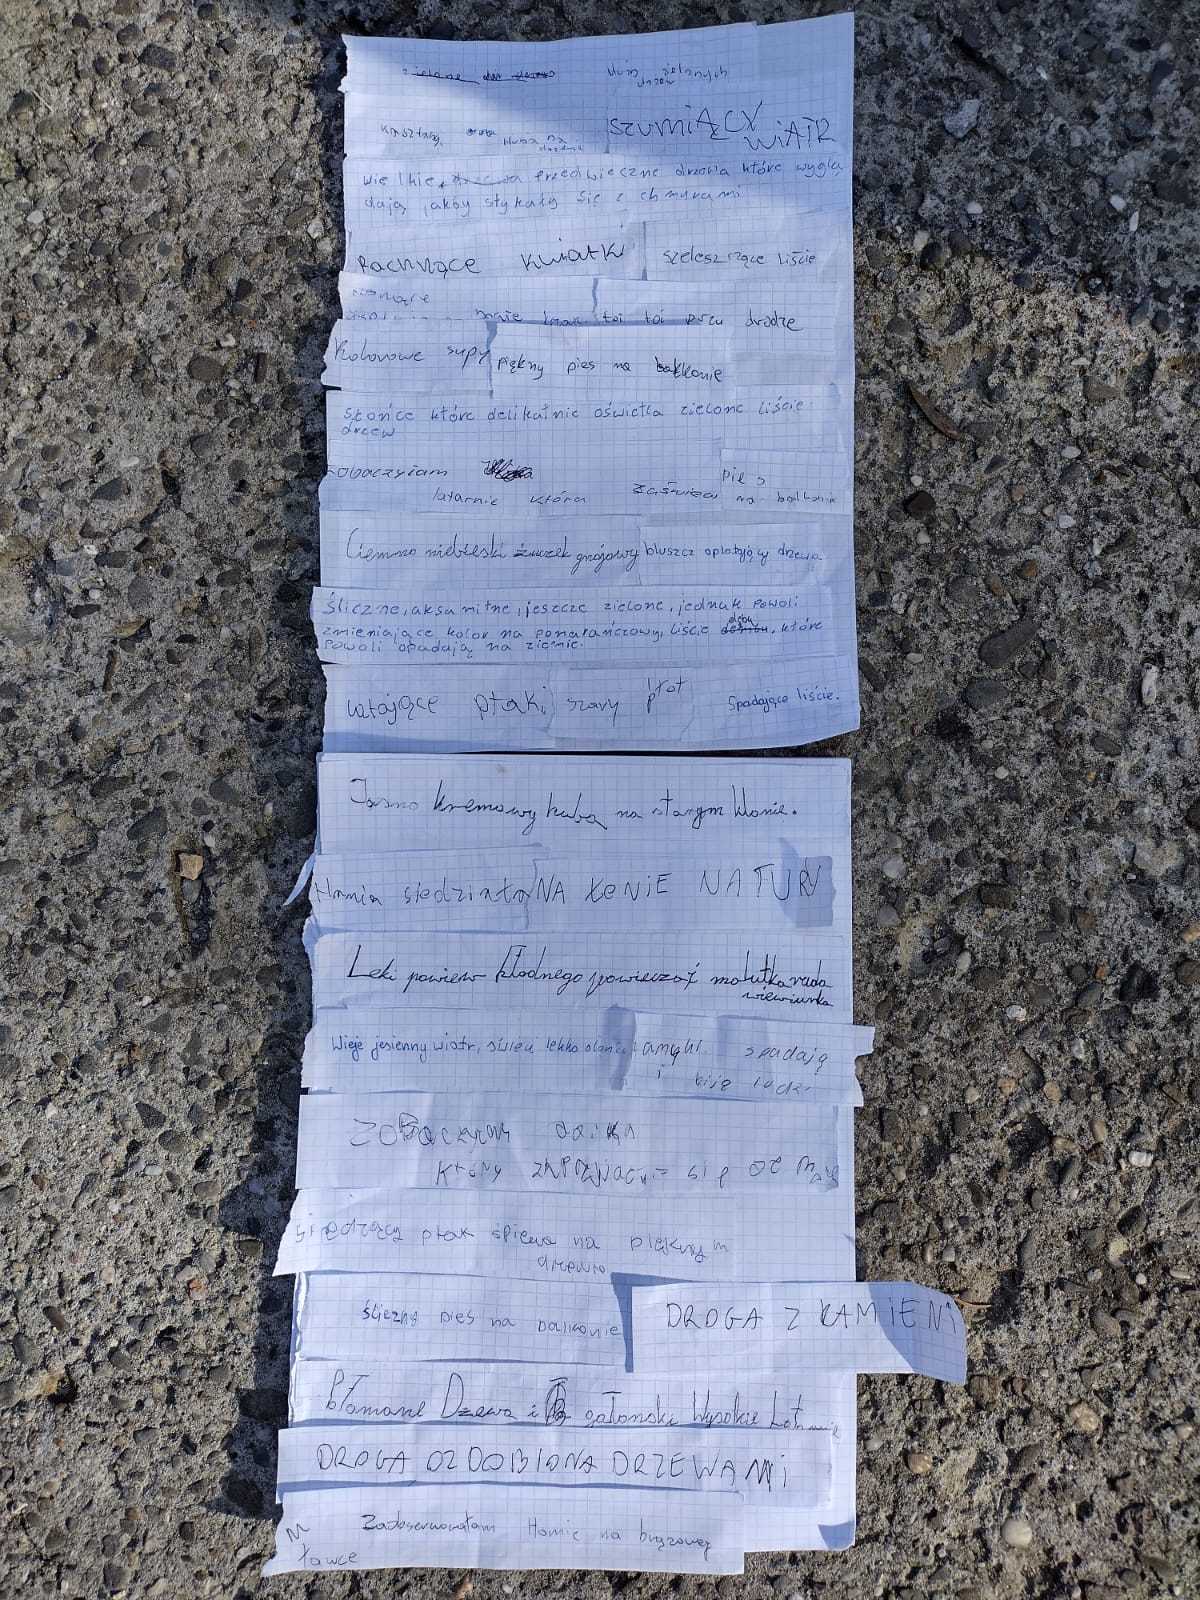 zielone
dużo zielonych
drzew
kasztany, huba na
drzewie
SZUMIĄCY
WIATR
wielkie, przedwieczne drzewa które wyglą
dają jakby stykały się z chmurami
Pachnące kwiatki
szeleszczące liście
toi toi przy drodze
piękny pies na balkonie
słońce które delikatnie oświetla zielone liście
drzew
zobaczyłam
latarnie która zaświeca
pies
na balkonie
Ciemno niebieski żuczek gnojowy
bluszcz oplatający drzewa
śliczne, aksamitne, jeszcze zielone, jednak powoli
zmieniające kolor na pomarańczowy, liście dębu, które
powoli opadają na ziemie.
latające ptaki
szary płot
Spadające liście.
Jasno kremowy huba na starym klonie.
Hania siedziała
NA ŁONIE NATURY
Leki powiew
malutka ruda
wiewiurka
Wieje jesienny wiatr, świeci lekko słońce
spadają
i
który się
ptak śpiewa na pięknym
drzewie
śliczny pies na balkonie
DROGA Z KAMIENI
Dzewa i Wysokie
DROGA OZDOBIONA DRZEWAMI
Zaobserwowałam Hanie na brązowej
ławce